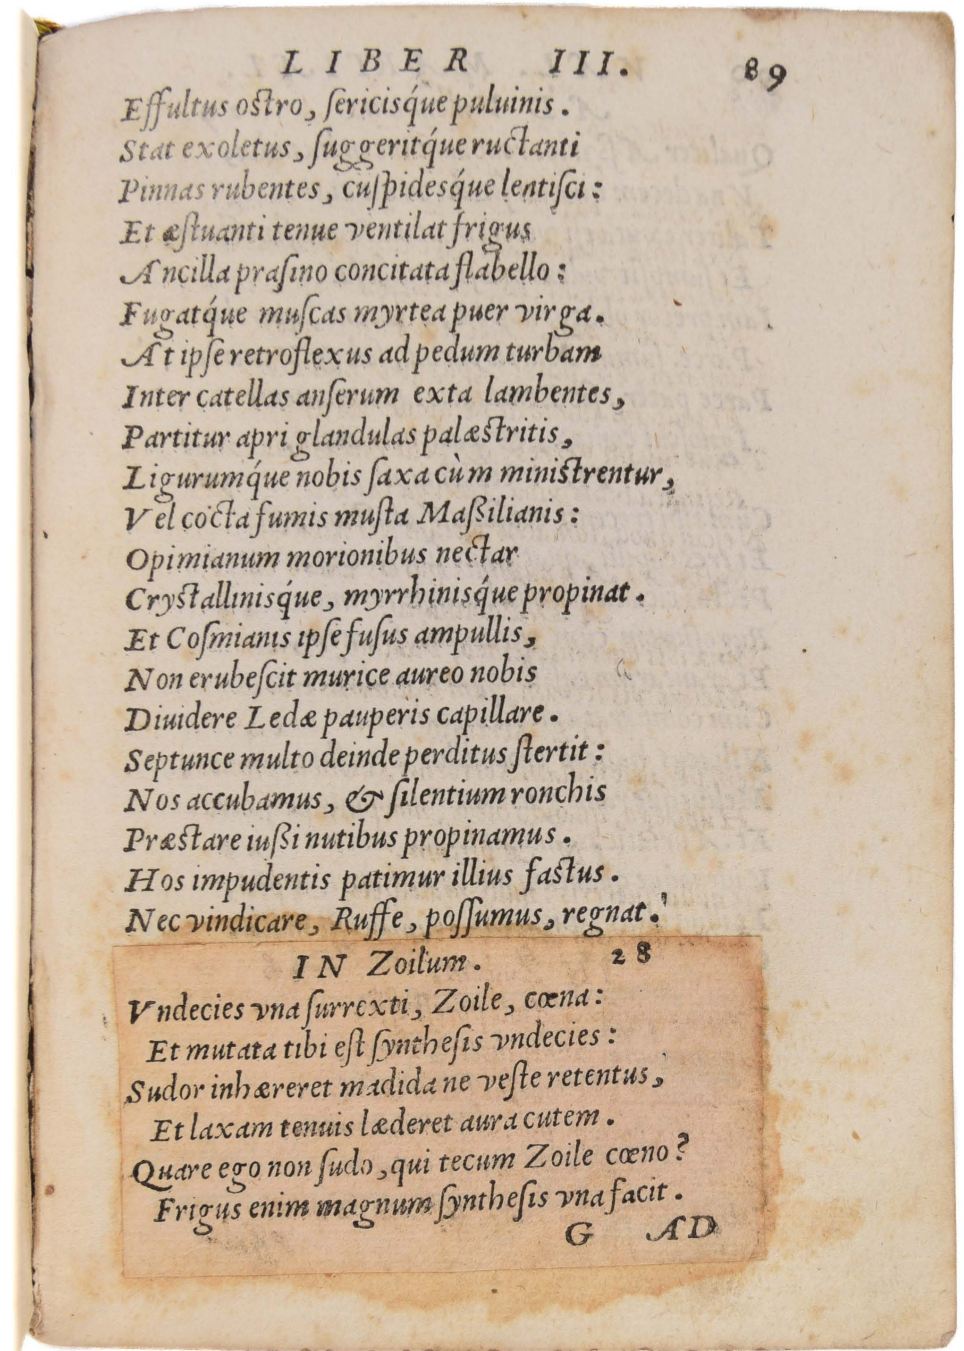 LIBER III. 89
Effultus ostro, ſericisq́ue puluinis.
Stat exoletus, ſuggeritq́ue ructanti
Pinnas rubentes, cuſpidesq́ue lentiſci:
Et æſtuanti tenue ventilat frigus
Ancilla praſino concitata flabello:
Fugatq́ue muſcas myrtea puer virga.
At ipſe retroflexus ad pedum turbam
Inter catellas anſerum exta lambentes,
Partitur apri glandulas palæstritis,
Ligurumq́ue nobis ſaxa cùm ministrentur,
Vel cocta fumis muſta Maßilianis:
Opimianum morionibus nectar
Crystallinisq́ue, myrrhinisq́ue propinat.
Et Coſmianis ipſe fuſus ampullis,
Non erubeſcit murice aureo nobis
Diuidere Ledæ pauperis capillare.
Septunce multo deinde perditus ſtertit:
Nos accubamus, & ſilentium ronchis
Præstare iußi nutibus propinamus.
Hos impudentis patimur illius fastus.
Nec vindicare, Ruffe, poſſumus, regnat.
IN Zoilum. 28
Vndecies vna ſurrexti, Zoile, cœna:
Et mutata tibi eſt ſyntheſis vndecies:
Sudor inhæreret madida ne veſte retentus,
Et laxam tenuis læderet aura cutem.
Quare ego non ſudo, qui tecum Zoile cœno?
Frigus enim magnum ſyntheſis vna facit.
G AD